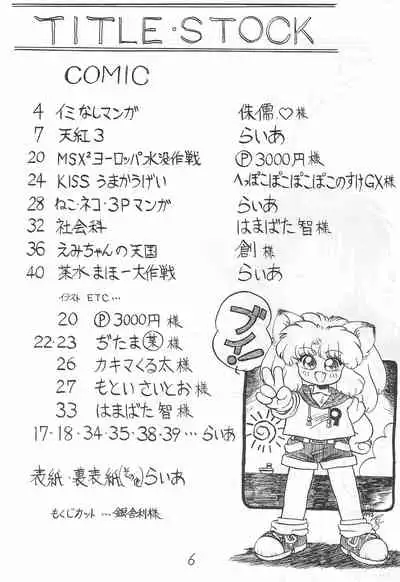 TITLE・STOCK
COMIC
4 イミなしマンガ 侏儒.♡様
7 天紅3 らいあ
20 MSX²ヨーロッパ水没作戦 Ⓟ3000円様
24 KISSうまかうげい へっぽこぽこぽこぽこのすけGX様
28 ねこ・ネコ・3Pマンガ らいあ
32 社会科 はまばた智様
36 えみちゃんの天国 創様
40 葉水まほー大作戦 らいあ
イラスト ETC…
20 Ⓟ3000円様
22・23 ぢたま㊇様
26 カキマくる太様
27 もといさいとお様
33 はまばた智様
17・18・34・35・38・39…らいあ
表紙・裏表紙 らいあ
もくじカット…銀舎利様
ブイ!
6